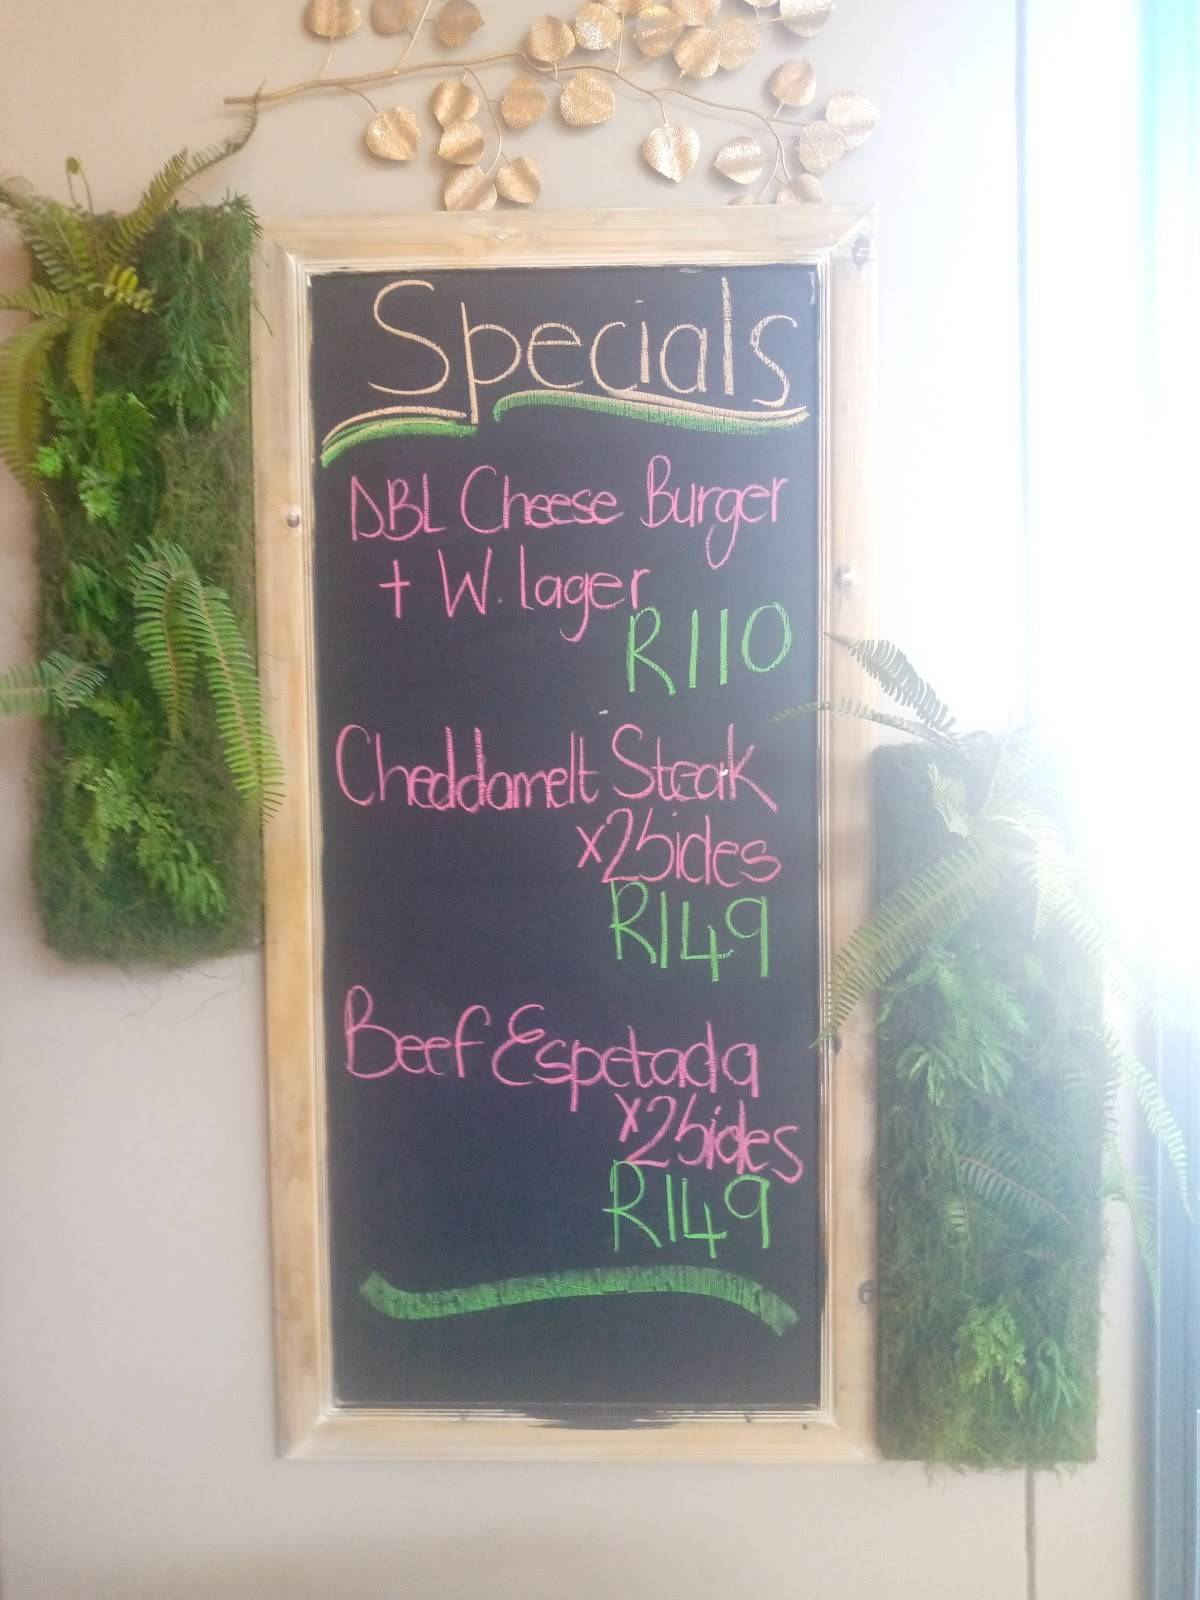 Specials
DBL Cheese Burger
+ W. lager
R110
Cheddamelt Steak
x2 Sides
R149
Beef Espetada
x2 Sides
R149